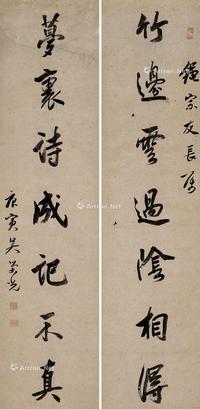 宗友長
竹邊雲過陰相得
夢裏詩成記不真
庚寅吳榮光